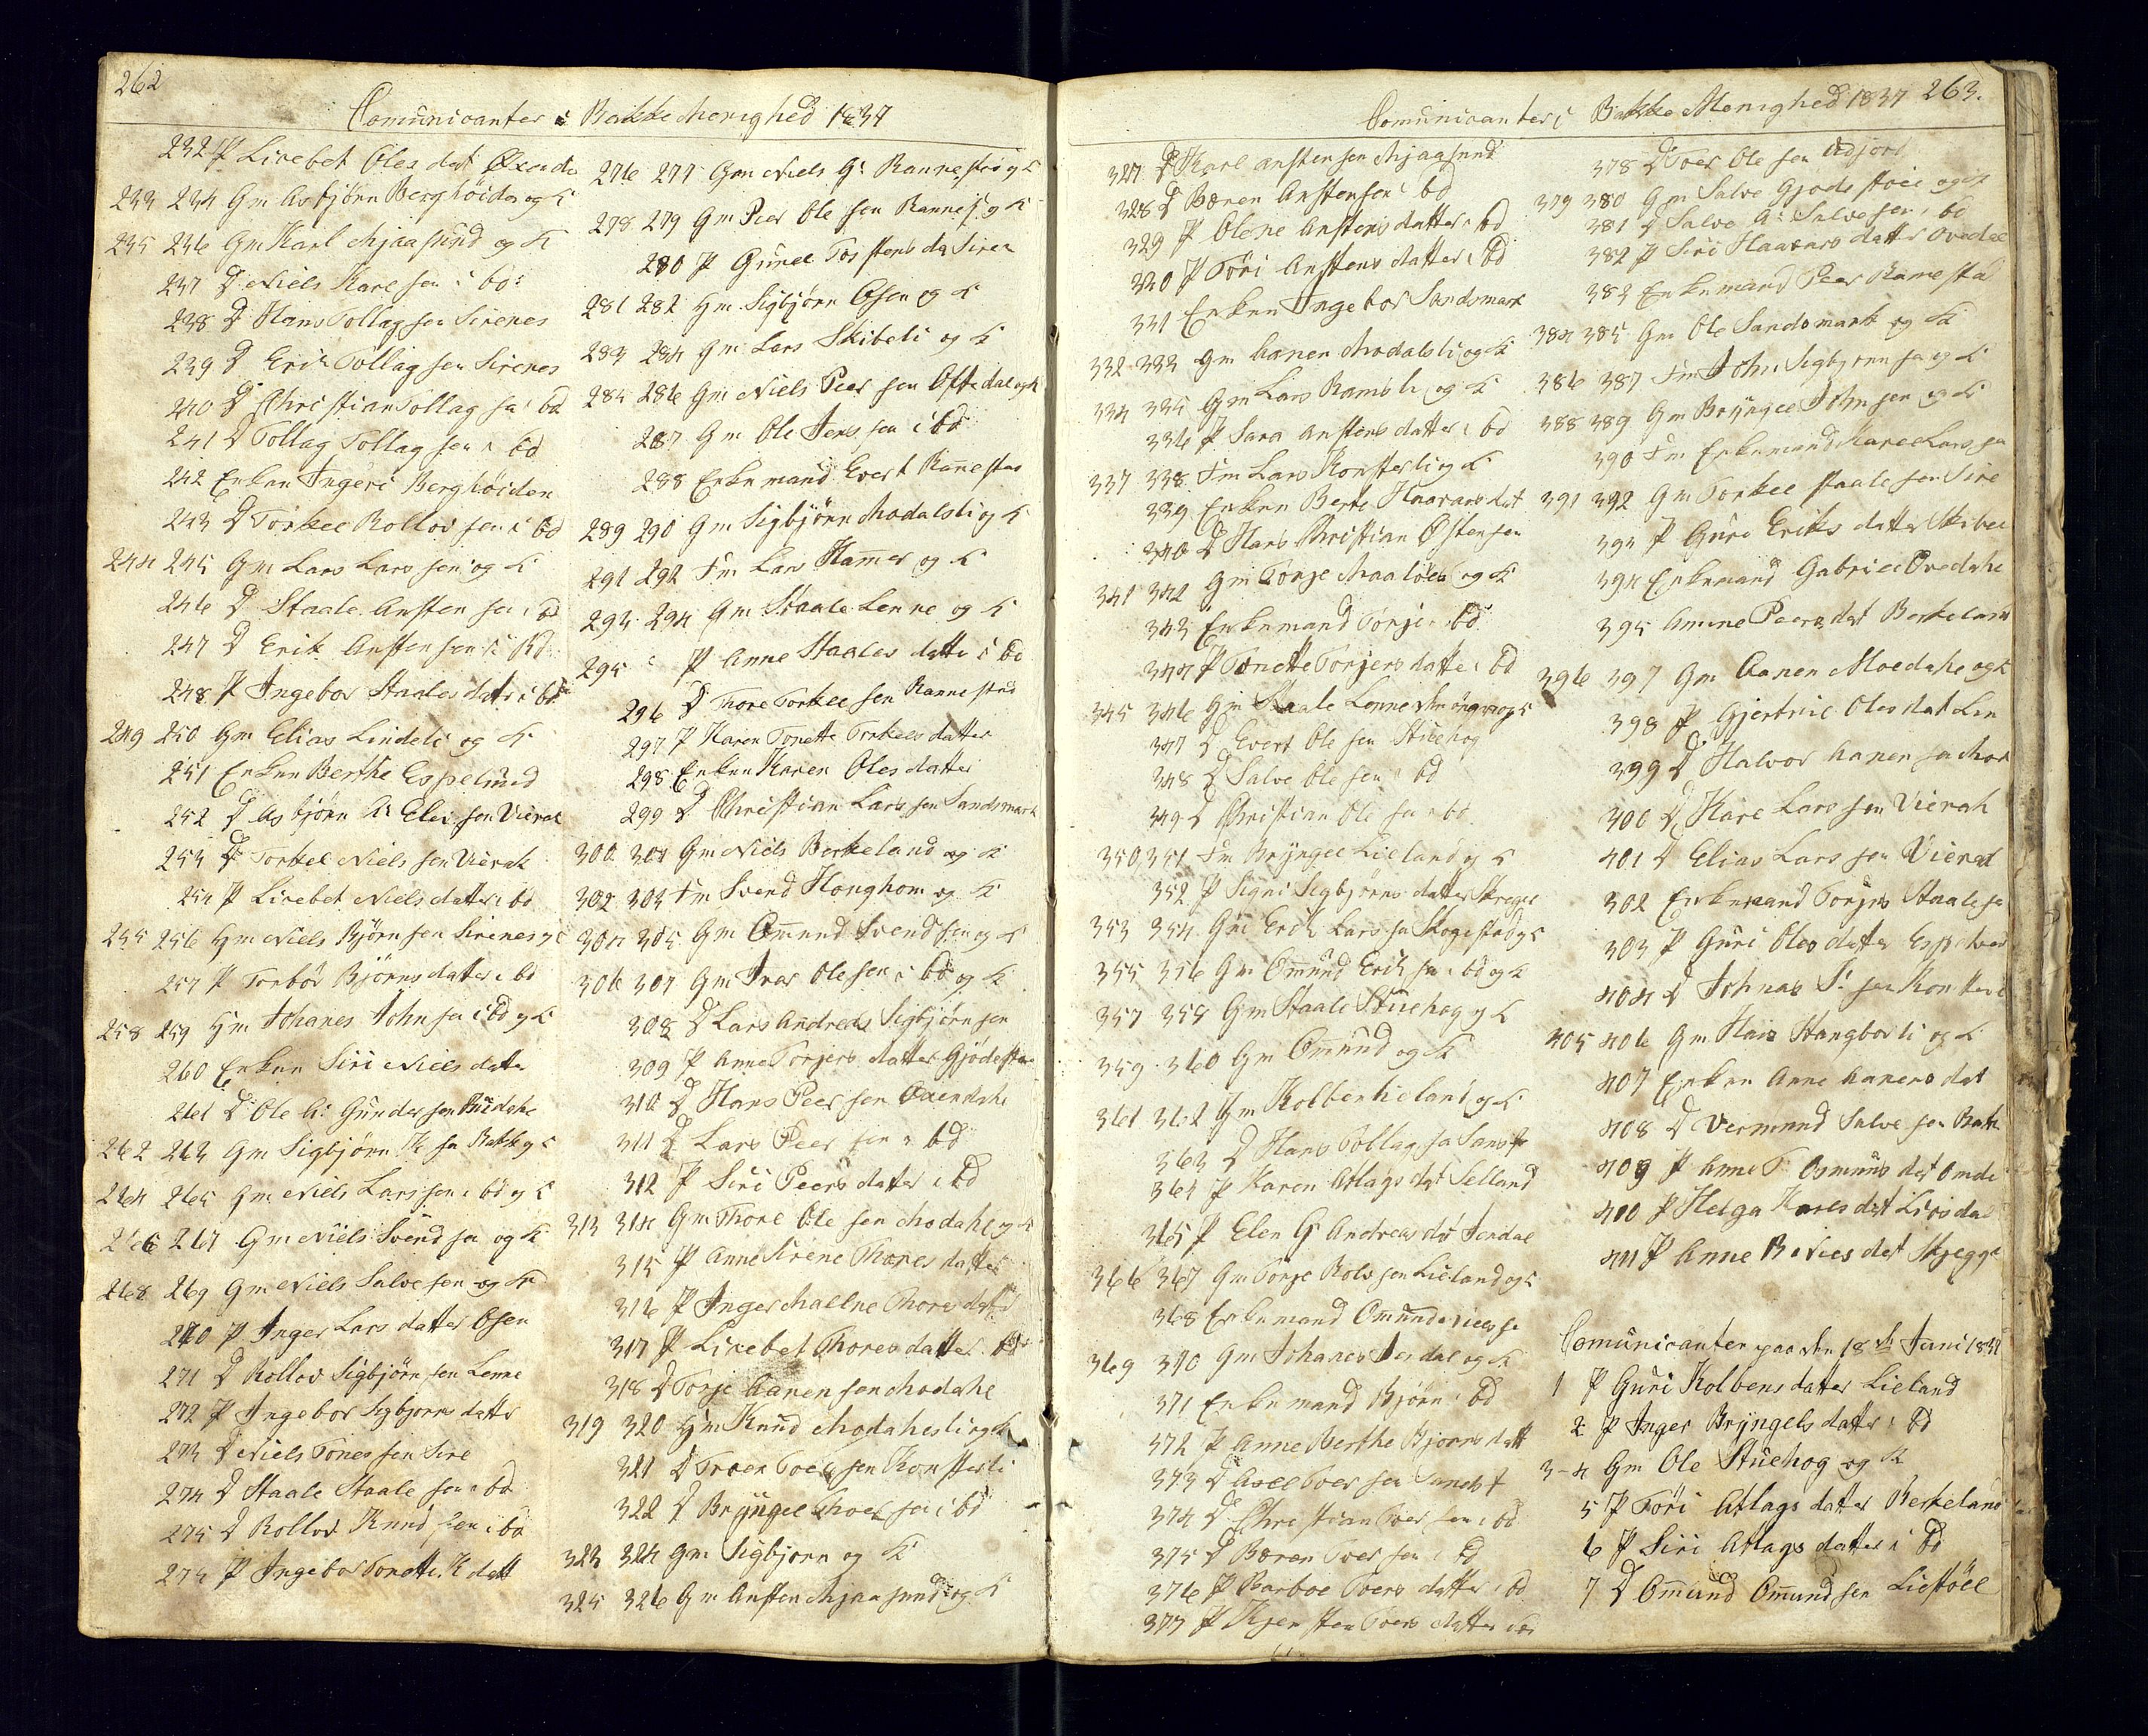 262
Comunicanter i Bakke Menighed 1837
232 P Lisebet Oles dat Øxenda
233 234 Gm Asbjørn Berghöiden og K
235 236 Gm Karl Mjaasund og K
237 D Niels Karl sen i bd
238 D Hans Tollag sen Sirenes
239 D Erik Tollag sen Sirenes
240 D Christian Tollag sen i bd
241 D Tollag Tollag sen i bd
242 Enken Ingeri Berghöiden
243 D Torkel Rollov sen i bd
244 245 Gm Lars Lars sen og K
246 D Staale Ansten sen i bd
247 D Erik Ansten sen i bd
248 P Ingebor Staales datr i bd
249 250 Gm Elias Lindeli og K
251 Enken Berthe Espelund
252 D Asbjörn A: Elis sen Vierak
253 D Torkel Niels sen Vierak
254 P Lisebet Niels datter i bd
255 256 Gm Niels Björn sen Sirenes og K
257 P Torbör Björns datter i bd
258 259 Gm Johanes John sen i bd og K
260 Enken Siri Niels datter
261 D Ole A: Gunder sen
262 263 Gm Sigbjörn sen Bakk og K
264 265 Gm Niels Lars sen i bd og K
266 267 Gm Niels Svend sen og K
268 269 Gm Niels Salve sen og K
270 P Inger Lars datter Osen
271 D Rollov Sigbjörn sen Lonne
272 P Ingebor Sigbjorns datter
273 D Niels Tönes sen Sire
274 D Staale Staale sen i bd
275 D Rollov Knud sen i bd
274 P Ingebor Tonette K datt
276 277 Gm Niels G: Rannestad og K
278 279 Gm Peer Ole sen Rannes: og K
280 P Guneel Tosstens da Sirea
281 282 Gm Sigbjörn Osen og K
283 284 Gm Lars Skibeli og K
285 286 Gm Niels Peer sen Oftedal og K
287 Gm Ole Jens sen i bd
288 Enkemand Evert Rannestad
289 290 Gm Sigbjörn Modalsli og K
291 292 Fm Lars Hamer og K
293 294 Gm Staale Lonne og K
295 P Anne Staales datter i bd
296 D Thore Torkel sen Rannestad
297 P Karen Tonette Torkels datter
298 Enken Karen Oles datter
299 D Christian Lars sen Sandsmark
300 301 Gm Niels Berkeland og K
302 303 Fm Svend Honghom og K
304 305 Gm Omund Svend sen og K
306 307 Gm Ivar Ole sen i bd og K
308 D Lars Andreas Sigbjörn sen
309 P Anne Torjers datter Gjödestøl
310 D Hans Peer sen Øxendahl
311 D Lars Peer sen i bd
312 P Siri Peers datter i bd
313 314 Gm Thore Ole sen Modahl og K
315 P Anne Sirene Thores datter
316 P Inger Mallne Thores dat i bd
317 P Lisebet Thores datter bd
318 D Torje Aanen sen Modahl
319 320 Gm Knud Modahlsli og K
321 D Troen Toer sen Konsterli
322 D Bryngel Thoer sen i bd
323 324 Gm Sigbjorn og K
325 326 Gm Ansten Mjaasund og K
Comunicanter i Bakke Menighed 1837 263.
327 D Karl Ansten sen Mjaasund
328 D Boren Ansten sen i bd
329 P Olene Anstens datter i bd
330 P Töri Anstens datter i bd
331 Enken Ingebor Sandsmark
332 333 Gm Aanen Modalsli og K
334 335 Gm Lars Ramsli og K
336 P Sara Anstens datter i bd
337 338 Fm Lars Konsterli og K
339 Enken Berte Haavars dat
340 D Hans Christian Osten sen
341 342 Gm Tonje Maaloes og K
343 Enkemand Torje i bd
344 P Tonette Torjers datter i bd
345 346 Gm Staale Lonne og K
347 D Evert Ole sen Stuehog
348 D Salve Ole sen i bd
349 D Christian Ole sen i bd
350 351 Fm Bryngel Lieland og K
352 P Signi Sigbjörns datter Skregge
353 354 Gm Erik Lars sen Skogestad og K
355 356 Gm Omund Erik sen i bd og K
357 358 Gm Staale Stuehog og K
359 360 Gm Omund og K
361 362 Gm Kolben Lieland og K
363 D Hans Tollag sen Sandst
364 P Karen Atlags dat Selland
365 P Elen G Andreas dr Jerdal
366 367 Gm Torje Rolv sen Lieland og K
368 Enkemand Omund Niels sen
369 370 Gm Johanes Jerdal og K
371 Enkemand Bjørn i bd
372 P Anne Berthe Bjorns datt
373 D Axel Toer sen Sandst
374 D Christian Toer sen i bd
375 D Boren Toer sen i bd
376 P Barboe Toers datter i bd
377 P Kjersten Toers datter i bd
378 D Toer Ole sen
379 380 Gm Salve Gjødestøl og K
381 D Salve A: Salve sen i bd
382 P Siri Haavars datter Ovedal
383 Enkemand Peer Ramestad
384 385 Gm Ole Sandsmark og K
386 387 Fm John Sigbjørn sen og K
388 389 Gm Bryngel John sen og K
390 Fm Enkemand Karl Lars sen
391 392 Gm Torkel Staale sen Sire
393 P Guro Eriks datter Skibel
394 Enkemand Gabriel Ovedahl
395 Amine Peers dat Berkeland
396 397 Gm Aanen Moedahl og K
398 P Gjertrue Oles dat Lin
399 D Halvor Aanen sen Mod
400 D Karl Lars sen Vierak
401 D Elias Lars sen Vierak
302 Enkemand Torjus Staale sen
303 P Guri Oles datter Espelund
404 D Johnas S: sen Konsterli
405 406 Gm Hans Stangborli og K
407 Enken Anne Aanens dat
408 D Vermund Salve sen Bakk
409 P Anne T: Osmunds dat Omda
400 P Helga Karls dat Lisdal
411 P Anne B Niels dat Skregge
Comunicanter paa den 18de Juni 1837
1 P Guri Kolbens datter Lieland
2 P Inger Bryngels datter i bd
3-4 Gm Ole Stuehog og K
5 P Töri Atlags datter Berkeland
6 P Siri Atlags datter i bd
7 D Omund Omund sen Liestöel